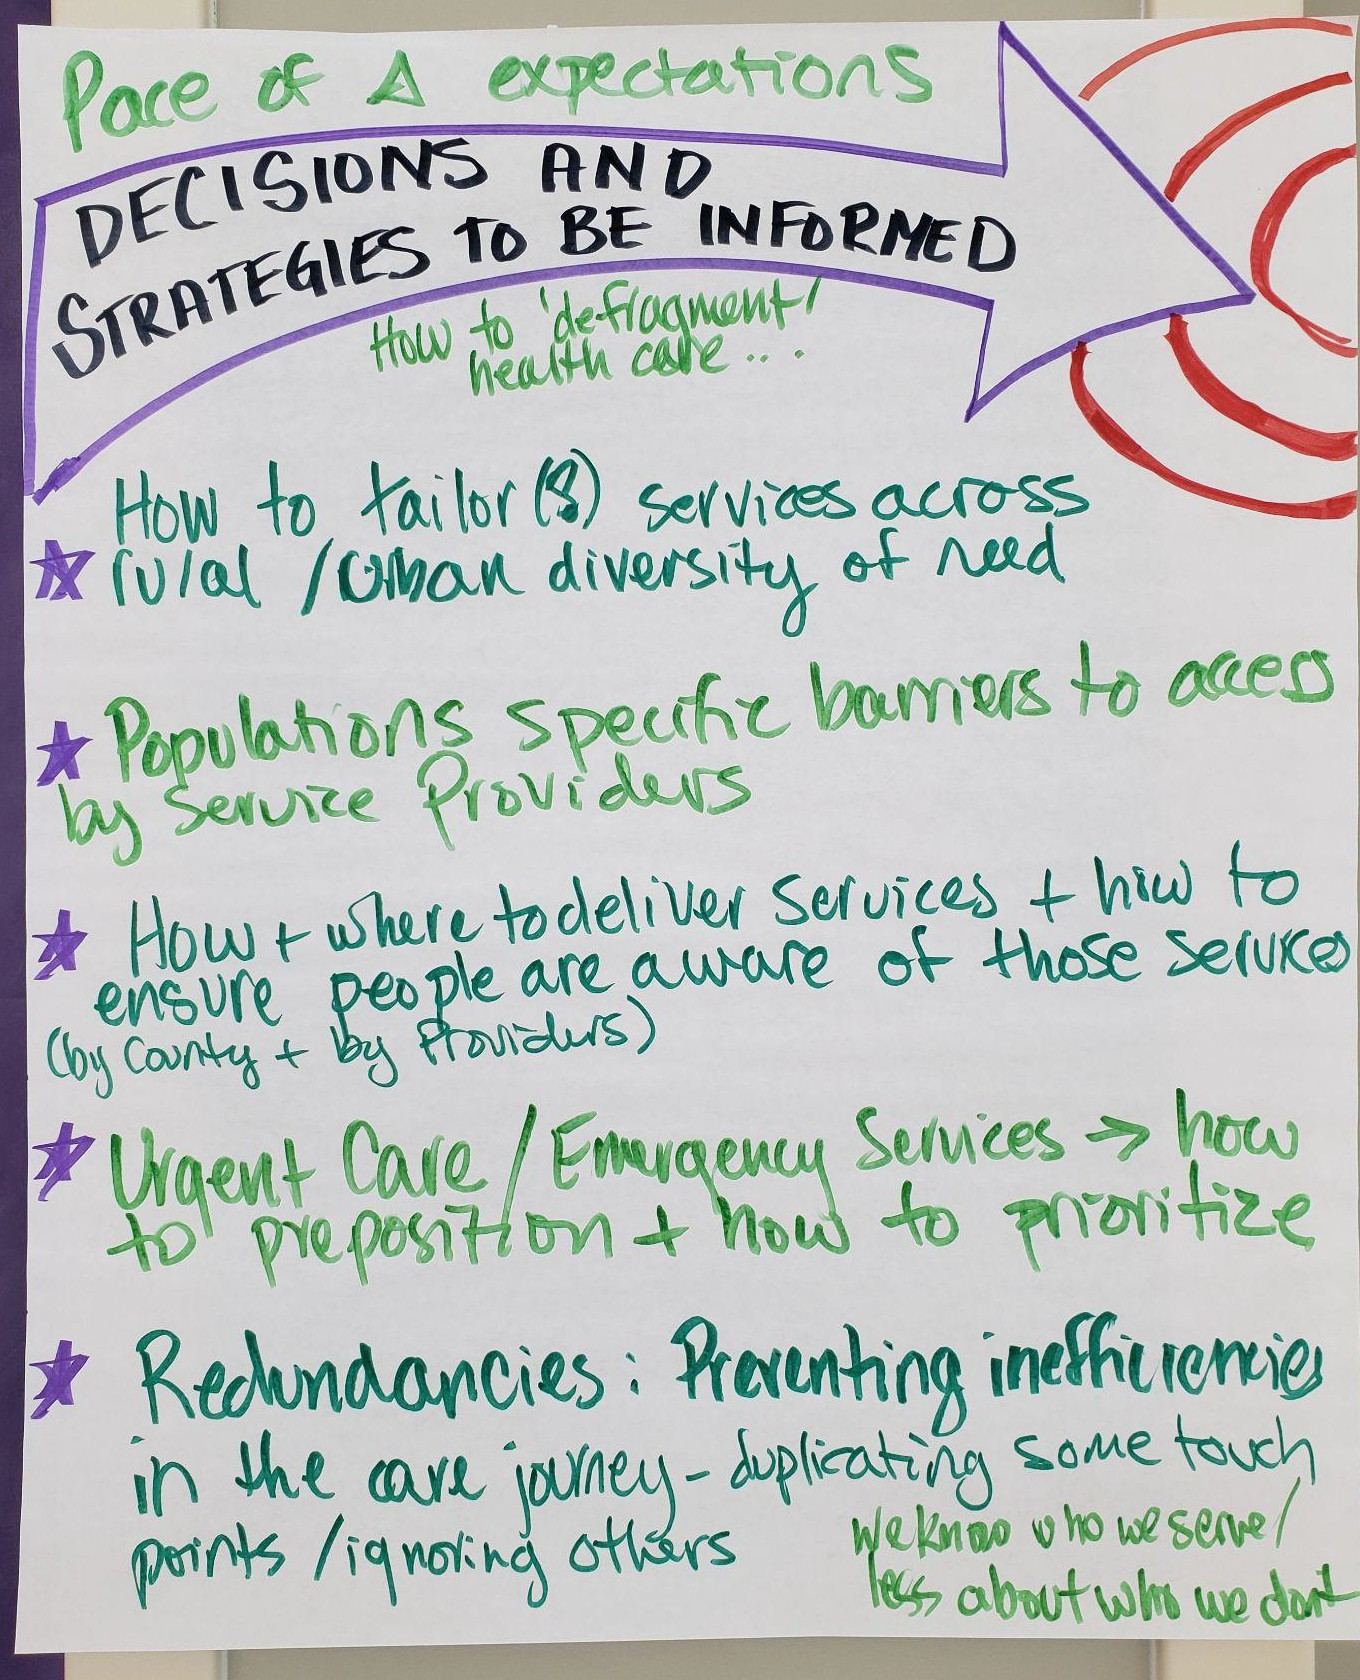 Pace of Δ expectations
DECISIONS AND
STRATEGIES TO BE INFORMED
How to 'defragment'
health care...
How to tailor ($) services across
rural / urban diversity of need
Populations specific barriers to access
by service Providers
How + where to deliver services + how to
ensure people are aware of those services
(by County + by Providers)
Urgent Care / Emergency Services → how
to preposition + how to prioritize
Redundancies: Preventing inefficiencies
in the care journey - duplicating some touch
points / ignoring others
We know who we serve /
less about who we don't